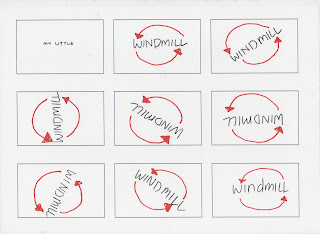 MY LITTLE
WINDMILL
WINDMILL
WINDMILL
WINDMILL
WINDMILL
WINDMILL
WINDMILL
WindMILL